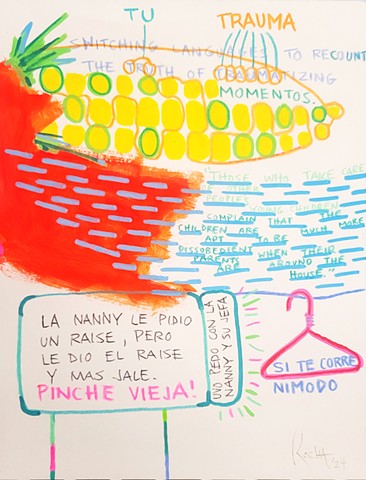 TU
TRAUMA
SWITCHING LANGUAGES TO RECOUNT
THE TRUTH OF TRAUMATIZING
MOMENTOS.
"THOSE WHO TAKE CARE
OF OTHER
PEOPLES YOUNG CHILDREN
COMPLAIN THAT THE
CHILDREN ARE MUCH MORE
APT TO BE
DISOBEDIENT WHEN THEIR
PARENTS ARE AROUND THE
HOUSE."
LA NANNY LE PIDIO
UN RAISE, PERO
LE DIO EL RAISE
Y MAS JALE.
PINCHE VIEJA!
UNO PEDO, CON LA
NANNY Y SU JEFA
SI TE CORRE
NIMODO
'24